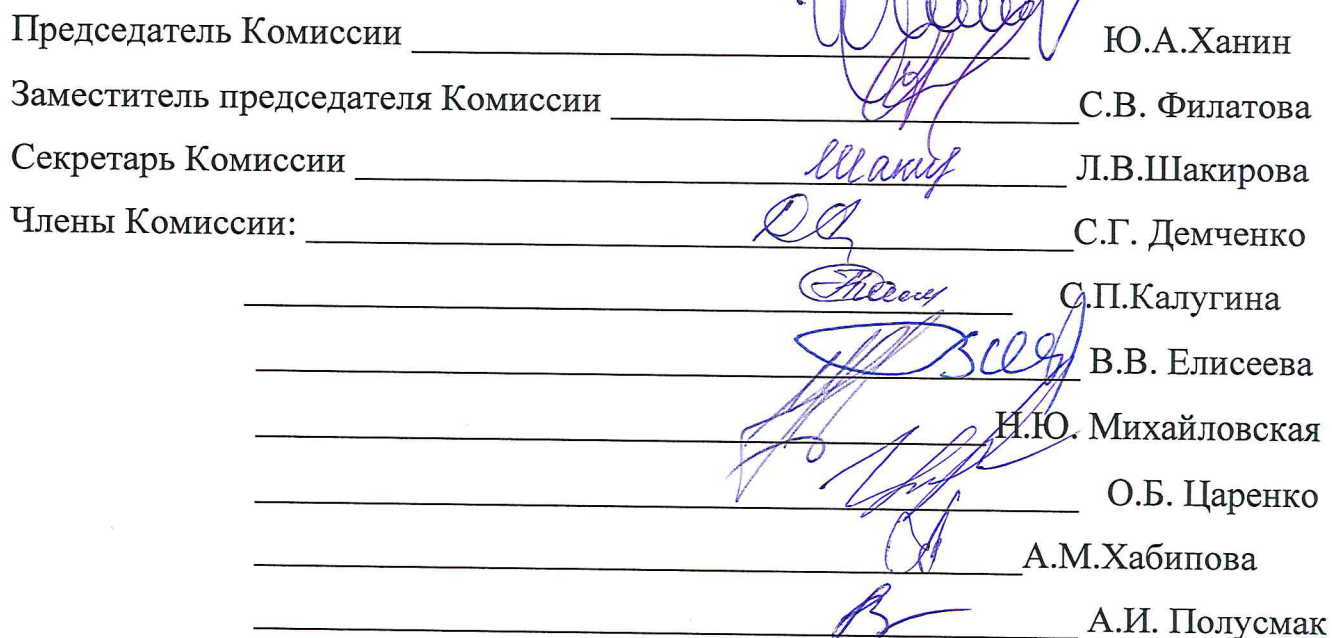 Председатель Комиссии Ю.А.Ханин
Заместитель председателя Комиссии С.В. Филатова
Секретарь Комиссии Л.В.Шакирова
Члены Комиссии: С.Г. Демченко
С.П.Калугина
В.В. Елисеева
Н.Ю. Михайловская
О.Б. Царенко
А.М.Хабипова
А.И. Полусмак